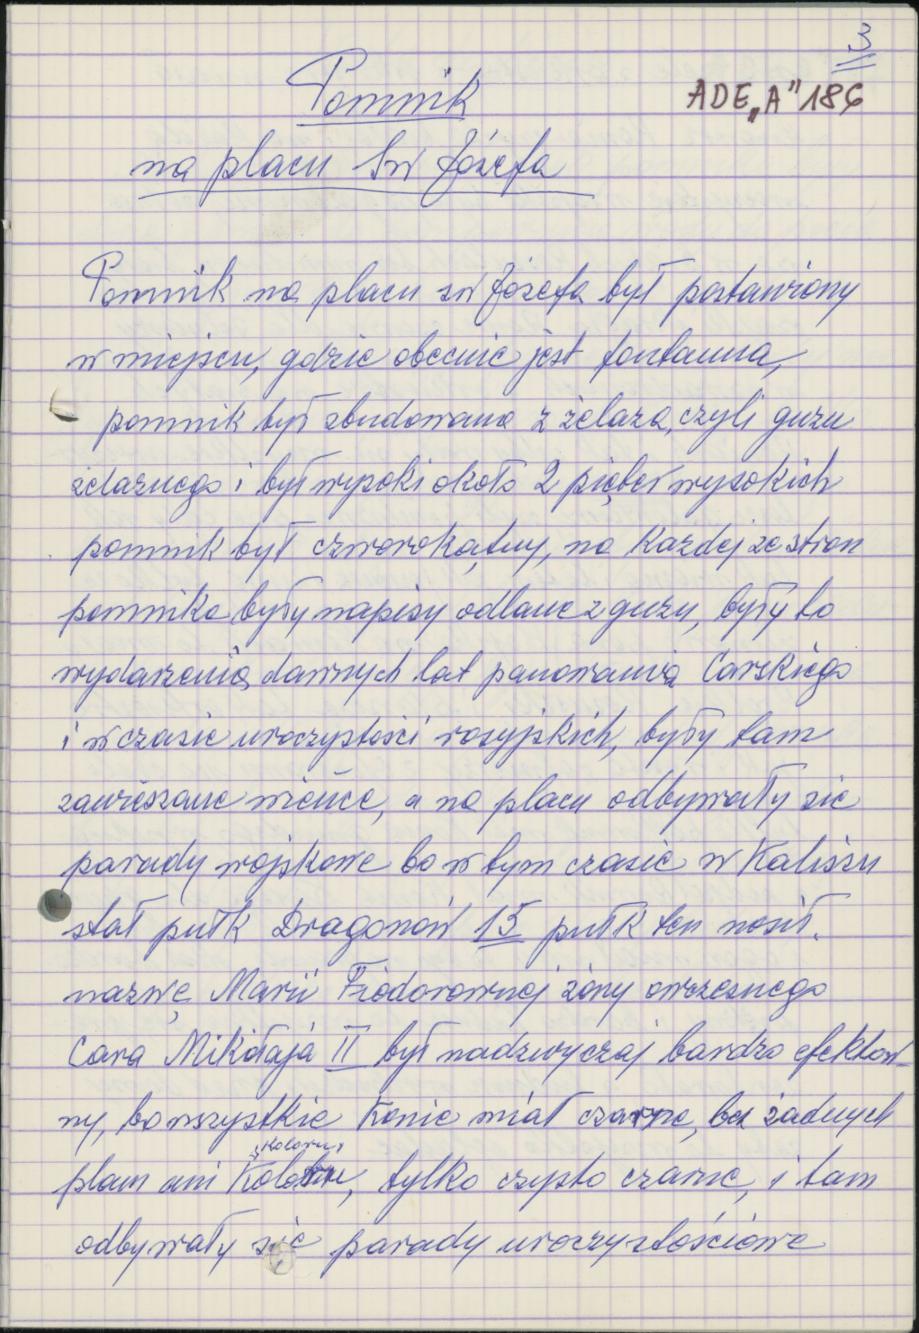 3
ADE „A" 186
Pomnik
na placu Św Józefa
Pomnik na placu św Józefa był postawiony
w miejscu, gdzie obecnie jest fontanna,
pomnik był zbudowano z żelaza, czyli guzu
żelaznego i był wysoki około 2 pięter wysokich
pomnik był czworokątny, na każdej ze stron
pomnika były napisy odlane z guzu, były to
wydarzenia dawnych lat panowania Carskiego
i w czasie uroczystości rosyjskich, były tam
zawieszane wieńce, a na placu odbywały się
parady wojskowe bo w tym czasie w Kaliszu
stał pułk Dragonów 15 pułk ten nosił
nazwę Marii Fiodorownej żony owczesnego
Cara Mikołaja II był nadzwyczaj bardzo efektow-
ny, bo wszystkie konie miał czarne, bez żadnych
plam ani „koloru", tylko czysto czarne, i tam
odbywały się parady uroczystościowe